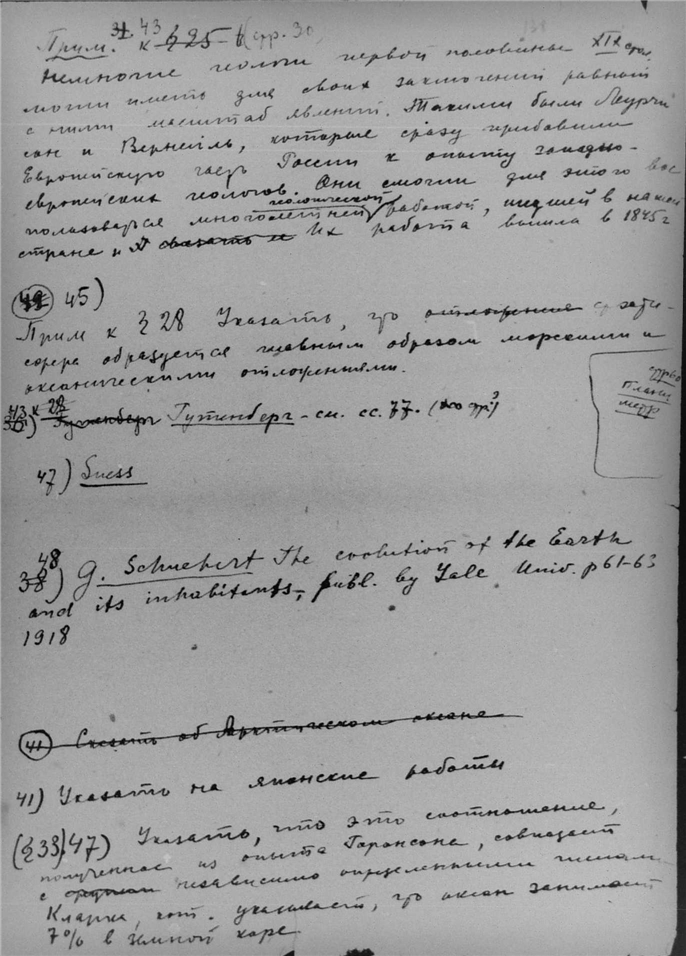 Прим. 43 к § 25 (стр. 30)
Немногие геологи первой половины XIX стол.
могли иметь для своих заключений равный
с ними масштаб явлений. Такими были Мурчи
сон и Вернейль, которые сразу прибавили
Европейскую часть России к опыту западно-
европейских геологов. Они смогли для этого вос
пользоваться многолетней геологической работой, шедшей в нашей
стране и связать Их работа вышла в 1845 г
42 45)
Прим к § 28 Указать, что отложение страти-
сфера образуется главным образом морскими и
океаническими отложениями.
к 28 Гутенберг Гутенберг - см. сс. 77. (стр?)
47) Suess
план
48
38) G. Schuchert The evolution of the Earth
and its inhabitants, publ. by Yale Univ. p 61-63
1918
41 Сказать об Арктическом океане
41) Указать на японские работы
(§ 33) 47) Указать, что это соотношение,
полученное из опыта, совпадает
с независимо определенными числами
Кларка, кот. указывает, что океан занимает
7% в земной коре